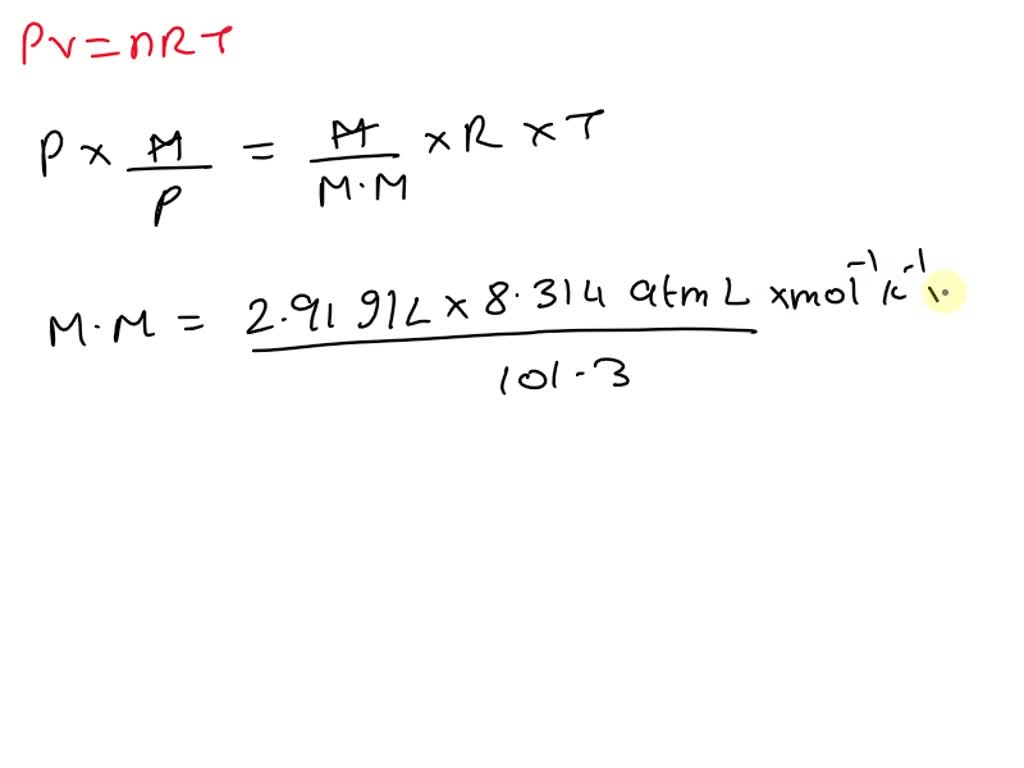 PV=nRT
P × M/P = M/M.M × R × T
M.M = 2.91 g/L × 8.314 atm L × mol⁻¹ K⁻¹ / 101.3